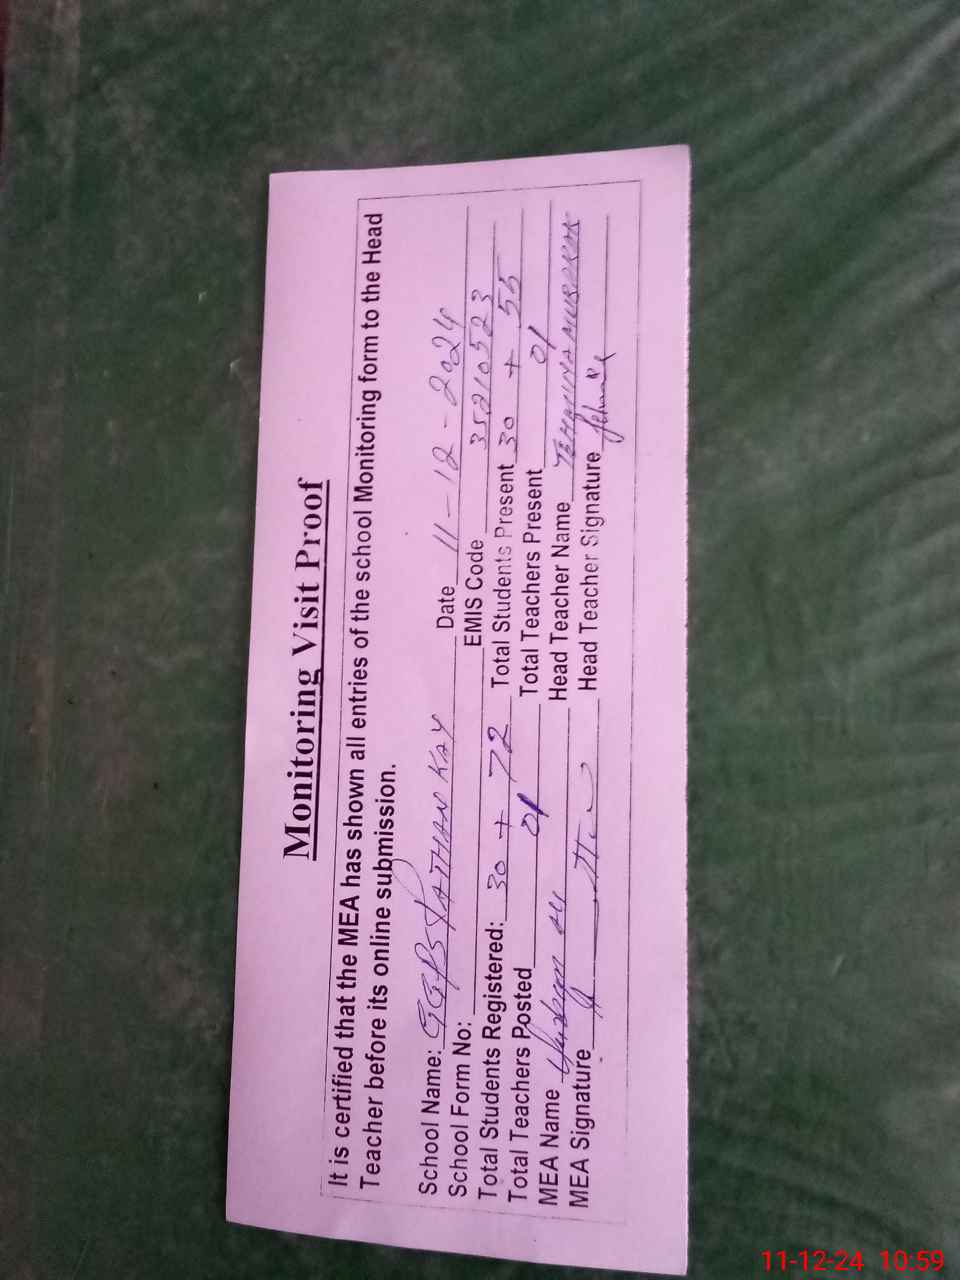 Monitoring Visit Proof
It is certified that the MEA has shown all entries of the school Monitoring form to the Head
Teacher before its online submission.
School Name: GGPS PATHAN KAY Date 11-12-2024
School Form No: EMIS Code 35210523
Total Students Registered: 30 + 72 Total Students Present 30 + 55
Total Teachers Posted 01 Total Teachers Present 01
MEA Name Head Teacher Name MUBARAK
MEA Signature Head Teacher Signature
11-12-24 10:59